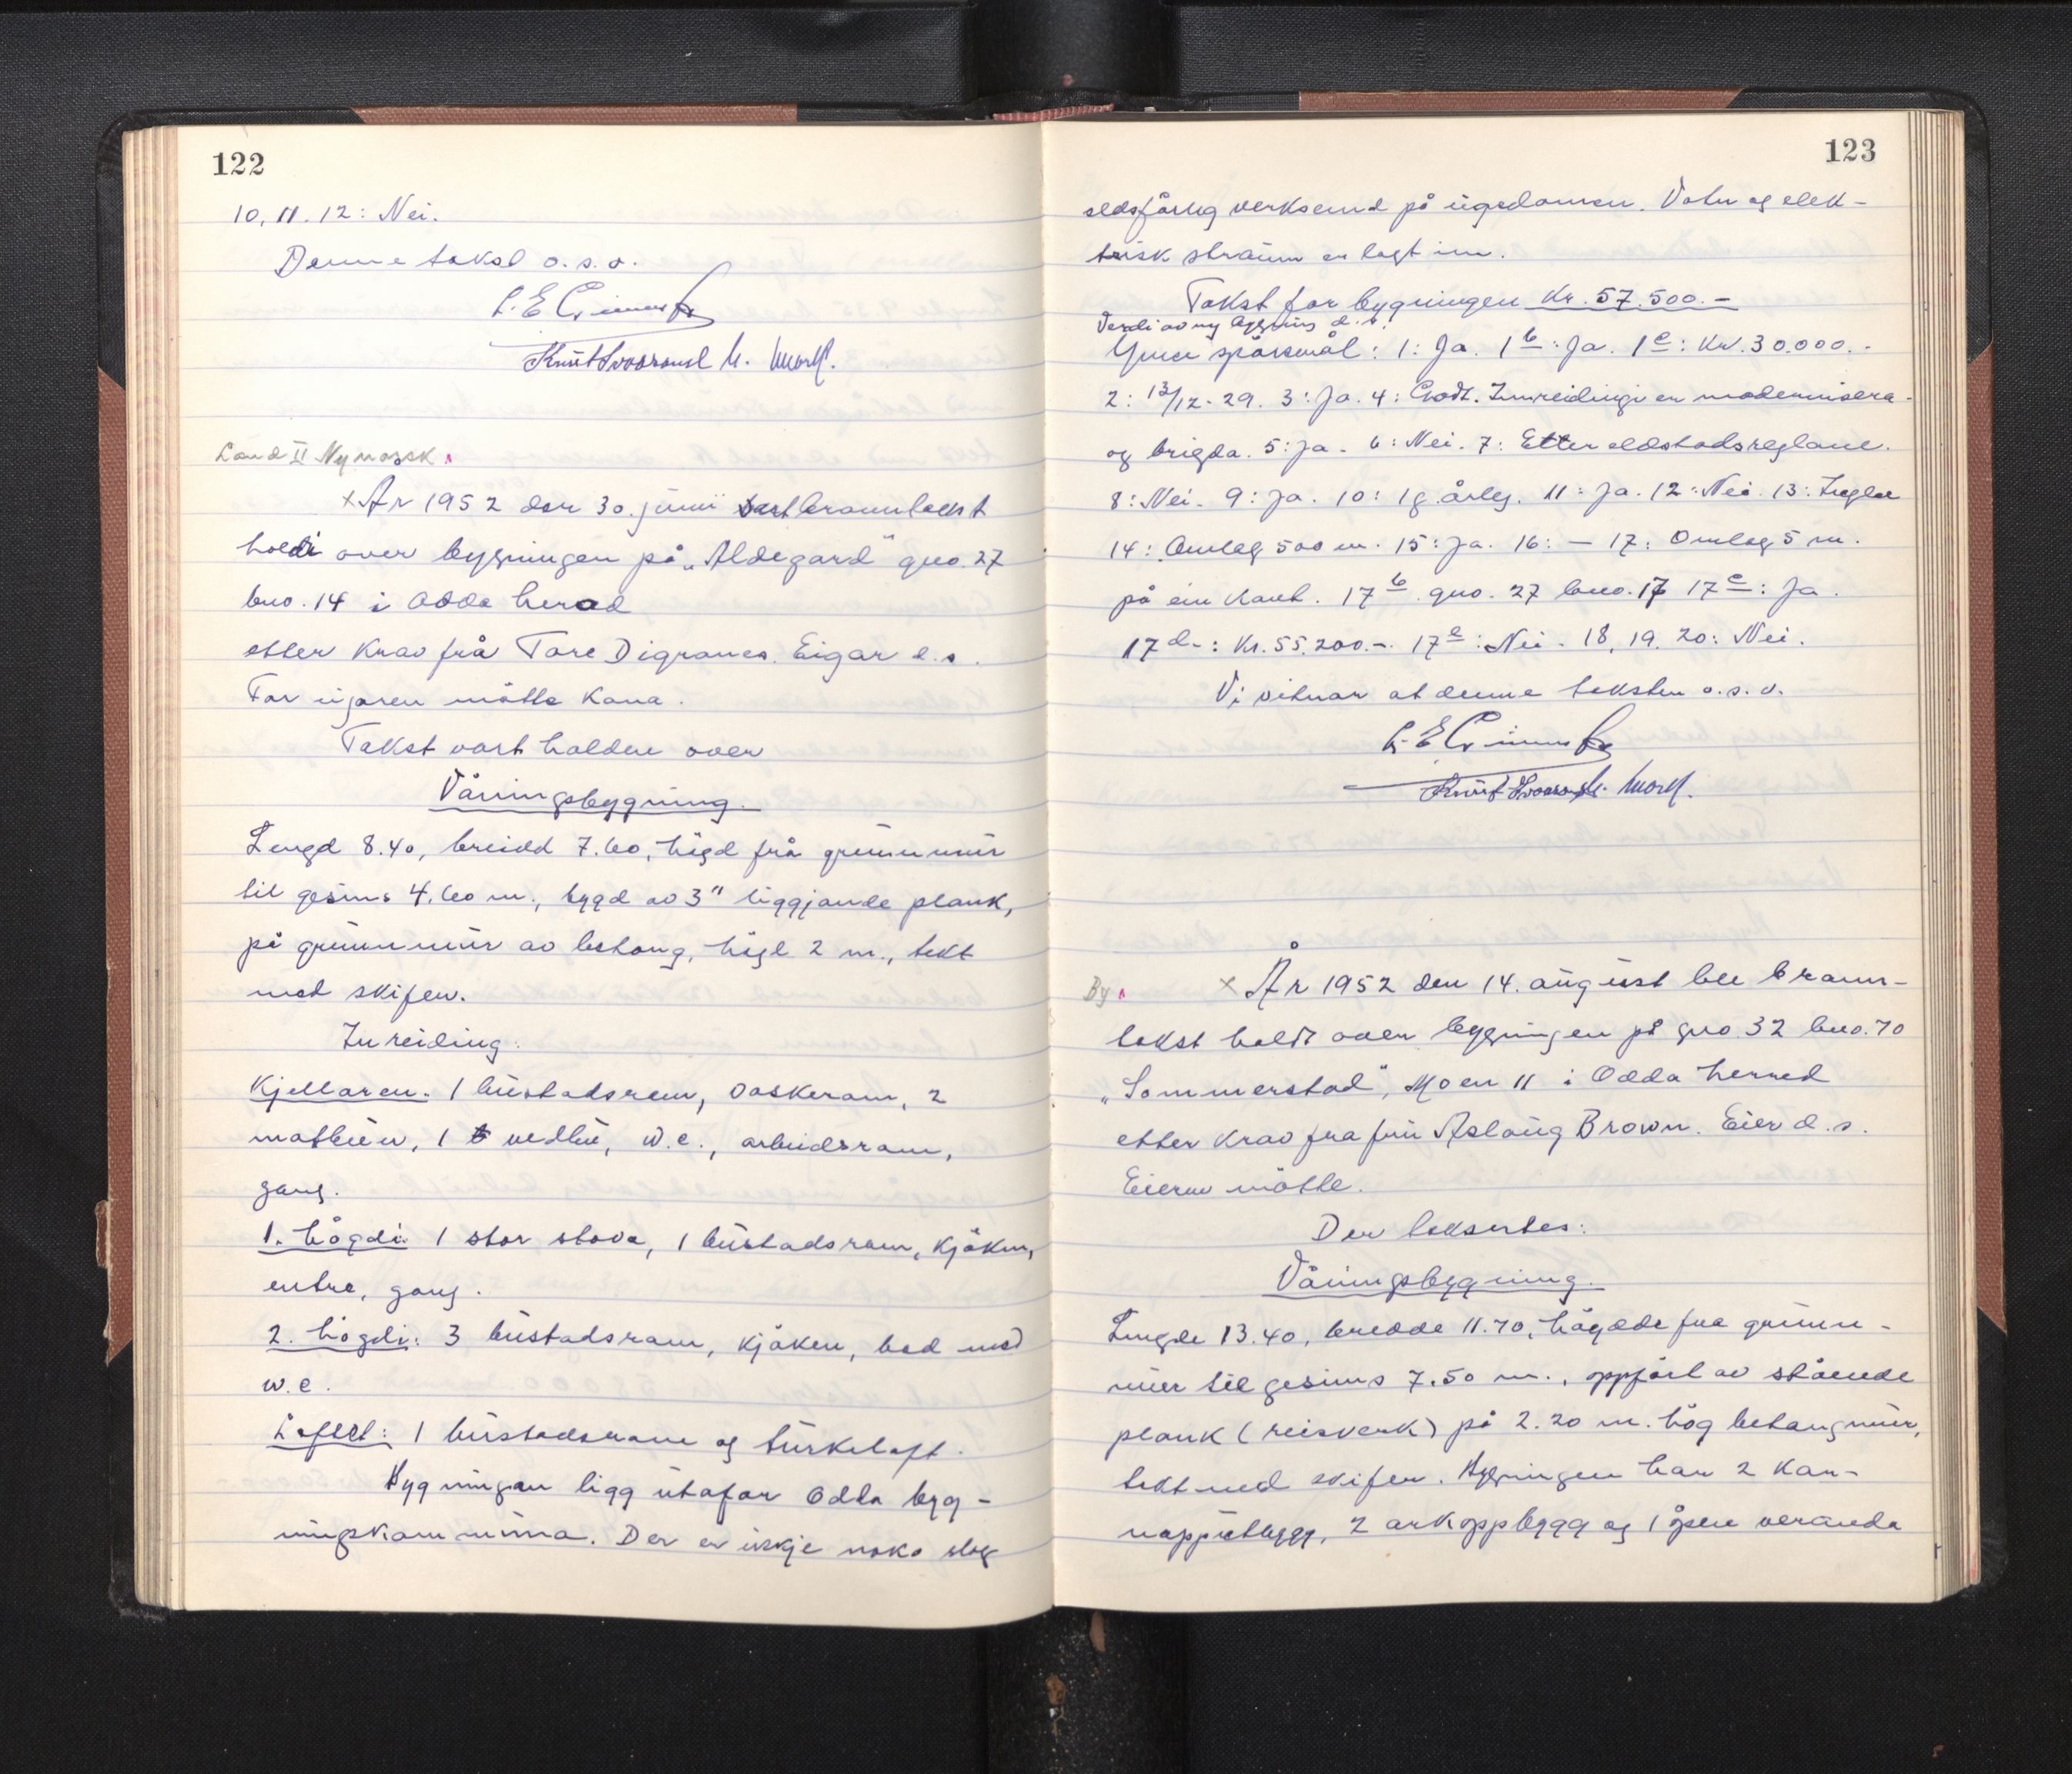 122
10, 11. 12: Nei.
Denne takst o. s. v.
Land II Nynorsk
x År 1952 den 30. juni vart branntakst
haldi over bygningen på „Aldegard" gno. 27
bno. 14 i Odda herad
etter krav frå Tore Digranes. Eigar d. s.
For eigaren møtte kona.
Takst vart halden over
Våningsbygning.
Lengd 8.40, breidd 7.60, høgd frå grunnmur
til gesims 4.60 m., bygd av 3" liggjande plank,
på grunnmur av betong, høgd 2 m., tekt
med skifer.
Innreiding:
Kjellaren: 1 bustadsrom, vaskerom, 2
matbuer, 1 vedbu, w.c., arbeidsrom,
gang.
1. høgdi: 1 stor stova, 1 bustadsrom, kjøken,
entre, gang.
2. høgdi: 3 bustadsrom, kjøken, bad med
w.c.
Loftet: 1 bustadsrom og turkeloft.
Bygningen ligg utafor Odda byg-
ningskommuna. Der er inkje noko slag
123
eldsfårleg verksemd på eigedomen. Vatn og elek-
trisk straum er lagt inn.
Takst for bygningen Kr. 57.500.-
Verdi av ny bygning d. s.
Ymse spørsmål: 1: Ja. 1 b: Ja. 1 c: Kr. 30.000.-
2: 13/12-29. 3: Ja. 4: Godt. Innreidingi er modernisera
og brigda. 5: Ja. 6: Nei. 7: Etter eldstadsreglane.
8: Nei. 9: Ja. 10: 1 g. årleg. 11: Ja. 12: Nei. 13: Ingler
14: Omlag 500 m. 15: Ja. 16: — 17: Omlag 5 m.
på ein kant. 17 b gno. 27 bno. 17 17 c: Ja.
17 d-: Kr. 55.200.-. 17 e: Nei. 18, 19. 20: Nei.
Vi vitnar at denne taksten o. s. v.
By
x År 1952 den 14. august ble brann-
takst holdt over bygningen på gno. 32 bno. 70
„Sommerstad", Moen 11 i Odda herred
etter krav fra fru Aslaug Brown. Eier d. s.
Eieren møtte.
Der taksertes:
Våningsbygning.
Lengde 13.40, bredde 11.70, høgde fra grunn-
mur til gesims 7.50 m., oppført av stående
plank (reisverk) på 2.20 m. høg betongmur,
tekt med skifer. Bygningen har 2 kar-
napputbygg, 2 arkoppbygg og 1 åpen veranda